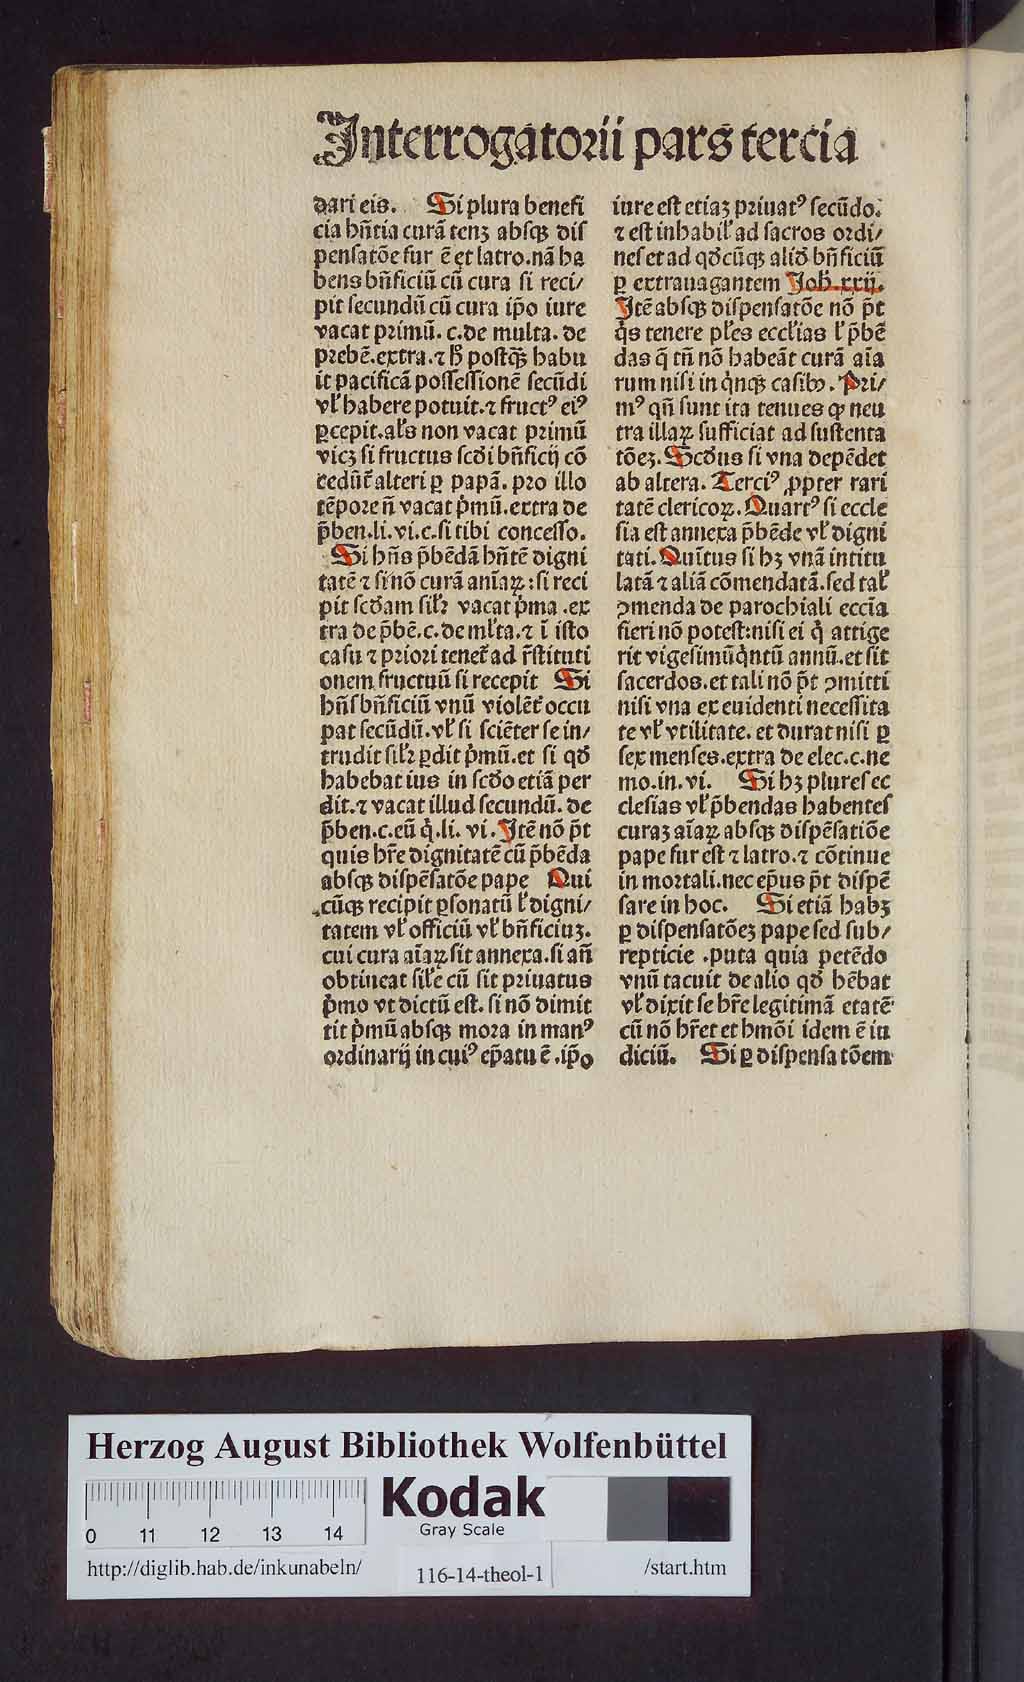 Interrogatorii pars̄ tercia
dari eis. Si plura benefi
cia hñtia curā tenꝫ absqꝫ dis
pensatōe fur ē et latro. nā ha
bens bñficiū cū cura si reci/
pit secundū cū cura ip̄o iure
vacat primū. c. de multa. de
prebē. extra. ⁊ hͦ postqꝫ̄ habu
it pacificā possessionē secūdi
vl̕ habere potuit. ⁊ fructꝰ eiꝰ
ꝑcepit. al̕s non vacat primū
vicꝫ si fructus scd̕i bñficij cō
cedūt᷑ alteri ꝑ papā. pro illo
tēpore ñ vacat p̕mū. extra de
p̄ben. li. vi. c. si tibi concesso.
Si hñs p̄bēdā hñtē digni
tatē ⁊ si nō curā anīaꝝ: si reci
pit scd̕am sil̕r vacat p̕ma. ex
tra de p̄bē. c. de ml̕ta. ⁊ ī isto
casu ⁊ priori tenet᷑ ad r̄stituti
onem fructuū si recepit Si
hñs bñficiū vnū violēt᷑ occu
pat secūdū. vl̕ si sciēter se in/
trudit sil̕r ꝑdit p̕mū. et si qd̕
habebat ius in scd̕o etiā per
dit. ⁊ vacat illud secundū. de
p̄ben. c. eū q̕. li. vi. Itē nō p̄t
quis hr̄e dignitatē cū p̄bēda
absqꝫ dispēsatōe pape Qui
cūqꝫ recipit ꝑsonatū l̕ digni/
tatem vl̕ officiū vl̕ bñficiuꝫ.
cui cura aīaꝝ sit annexa. si añ
obtineat sil̕e cū sit priuatus
p̕mo vt dictū est. si nō dimit
tit p̕mū absqꝫ mora in manꝰ
ordinarij in cuiꝰ ep̄atu ē. ip̄o
iure est etiaꝫ priuatꝰ secūdo.
⁊ est inhabil̕ ad sacros ordi/
nes et ad qd̕cūqꝫ alid̕ bñficiū
ꝑ extrauagantem Joh̄. xxij.
Itē absqꝫ dispensatōe nō p̄t
q̕s tenere pl̕es eccl̕ias l̕ p̄bē
das q̄ tñ nō habeāt curā aīa
rum nisi in q̕nqꝫ casibꝰ. Pri/
mꝰ qñ sunt ita tenues ꝙ neu
tra illaꝝ sufficiat ad sustenta
tōeꝫ. Scd̕us si vna depēdet
ab altera. Terciꝰ ꝓpter rari
tatē clericoꝝ. Quartꝰ si eccle
sia est annexa p̄bēde vl̕ digni
tati. Quītus si hꝫ vnā intitu
latā ⁊ aliā cōmendatā. sed tal̕
ꝯmenda de parochiali eccīa
fieri nō potest: nisi ei q̕ attige
rit vigesimūq̕ntū annū. et sit
sacerdos. et tali nō p̄t ꝯmitti
nisi vna ex euidenti necessita
te vl̕ vtilitate. et durat nisi ꝑ
sex menses. extra de elec. c. ne
mo. in. vi. Si hꝫ plures ec
clesias vl̕ p̄bendas habentes
curaꝫ aīaꝝ absqꝫ dispēsatiōe
pape fur est ⁊ latro. ⁊ cōtinue
in mortali. nec ep̄us p̄t dispē
sare in hoc. Si etiā habꝫ
ꝑ dispensatōeꝫ pape sed sub/
repticie. puta quia petēdo
vnū tacuit de alio qd̕ hēbat
vl̕ dixit se hr̄e legitimā etatē
cū nō hr̄et et hmōi idem ē iu
diciū. Si ꝑ dispensatōem
Herzog August Bibliothek Wolfenbüttel
0 11 12 13 14
Kodak
Gray Scale
http://diglib.hab.de/inkunabeln/
116-14-theol-1
/start.htm